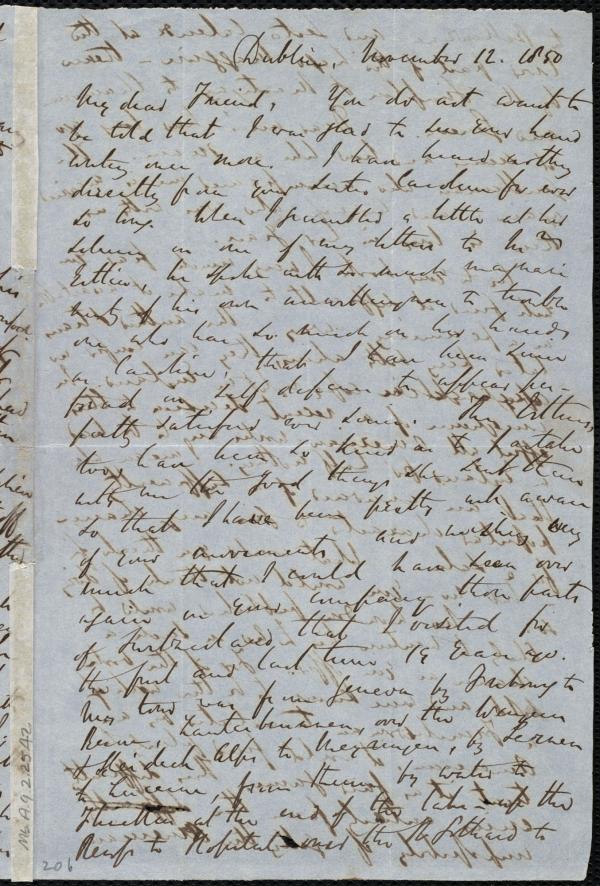 Dublin, November 12. 1850
My dear Friend, You do not want to
be told that I was glad to see your hand
writing once more. I have heard nothing
directly from your sister Caroline for ever
so long. When I grumbled a little at her
silence in one of my letters to Mrs
Estlin, he spoke with so much
of his own unworthiness to trouble
one who has so much on her hands
as Caroline, that I have been
in self defence to appear per-
fectly satisfied ever since. The Estlins
too, have been so kind as to partake
with me the good things she sent them
so that I have been pretty well aware
of your movements and wishing very
much that I could have been over
again in your company those parts
of Switzerland that I visited for
the first and last time 19 years ago.
was from Geneva by Fribourg to
Berne, Lauterbrunnen, over the Wengern
& Scheideck Alps to Meyringen, by Lungern
to Lucerne, from thence by water to
Fluellen at the end of the lake up the
Reuss to Hospital over the St Gothard to
206
Ms A.9.2 25.42